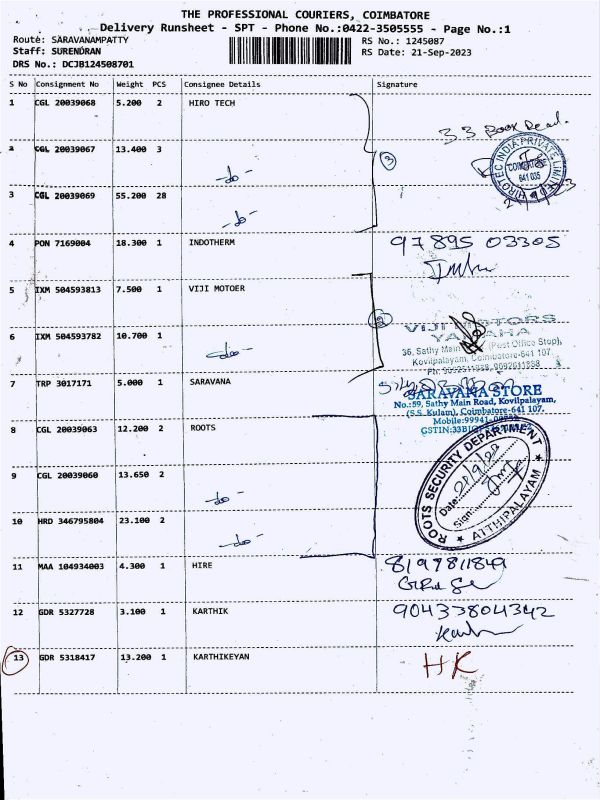 THE PROFESSIONAL COURIERS, COIMBATORE
Delivery Runsheet - SPT - Phone No.:0422-3505555 - Page No.:1
Route: SARAVANAMPATTY RS No.: 1245087
Staff: SURENDRAN RS Date: 21-Sep-2023
DRS No.: DCJB124508701
S No Consignment No Weight PCS Consignee Details Signature
1 CGL 20039068 5.200 2 HIRO TECH
33 Book Read.
2 CGL 20039067 13.400 3 -do- 3
HIROTEC INDIA PRIVATE LIMITED
COIMBATORE
641 035
3 CGL 20039069 55.200 28 -do-
4 PON 7169004 18.300 1 INDOTHERM 97895 03305
5 IXM 504593813 7.500 1 VIJI MOTOER
VIJI MOTORS
YAMAHA
6 IXM 504593782 10.700 1 -do- 2
36, Sathy Main (Post Office Stop),
Kovilpalayam, Coimbatore-641 107.
7 TRP 3017171 5.000 1 SARAVANA
SARAVANA STORE
No.:59, Sathy Main Road, Kovilpalayam,
(S.S. Kulam), Coimbatore-641 107.
Mobile:99941
8 CGL 20039063 12.200 2 ROOTS
ROOTS SECURITY DEPARTMENT
9 CGL 20039060 13.650 2 -do-
Date: 21/9/23
Sign:
ATTHIPALAYAM
10 HRD 346795804 23.100 2 -do-
11 MAA 104934003 4.300 1 HIRE 8197811849
12 GDR 5327728 3.100 1 KARTHIK 90433804342
13 GDR 5318417 13.200 1 KARTHIKEYAN HK